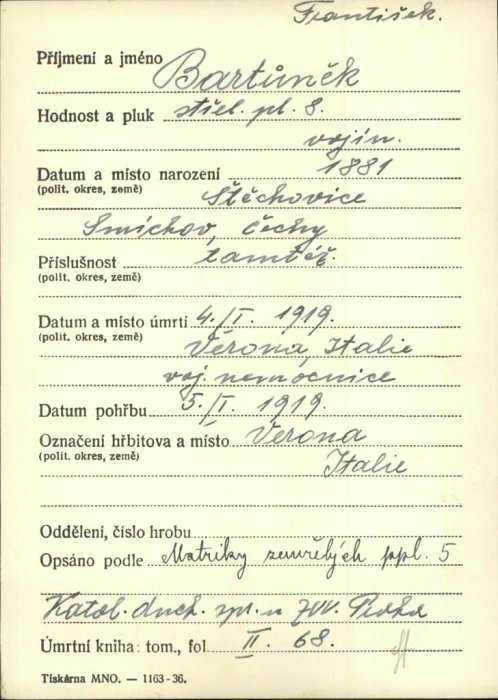 František.
Příjmení a jméno Bartůněk
Hodnost a pluk střel. pl. 8.
vojín.
Datum a místo narození 1881
(polit. okres, země) Štěchovice
Smíchov, Čechy
Příslušnost tamtéž.
(polit. okres, země)
Datum a místo úmrtí 4./I. 1919.
(polit. okres, země) Verona, Italie
voj. nemocnice
Datum pohřbu 5./I. 1919.
Označení hřbitova a místo Verona
(polit. okres, země) Italie
Oddělení, číslo hrobu
Opsáno podle Matriky zemřelých ppl. 5
Katol. duch. spr. u ZVV. Praha
Úmrtní kniha: tom., fol. II. 68.
Tiskárna MNO. — 1163-36.